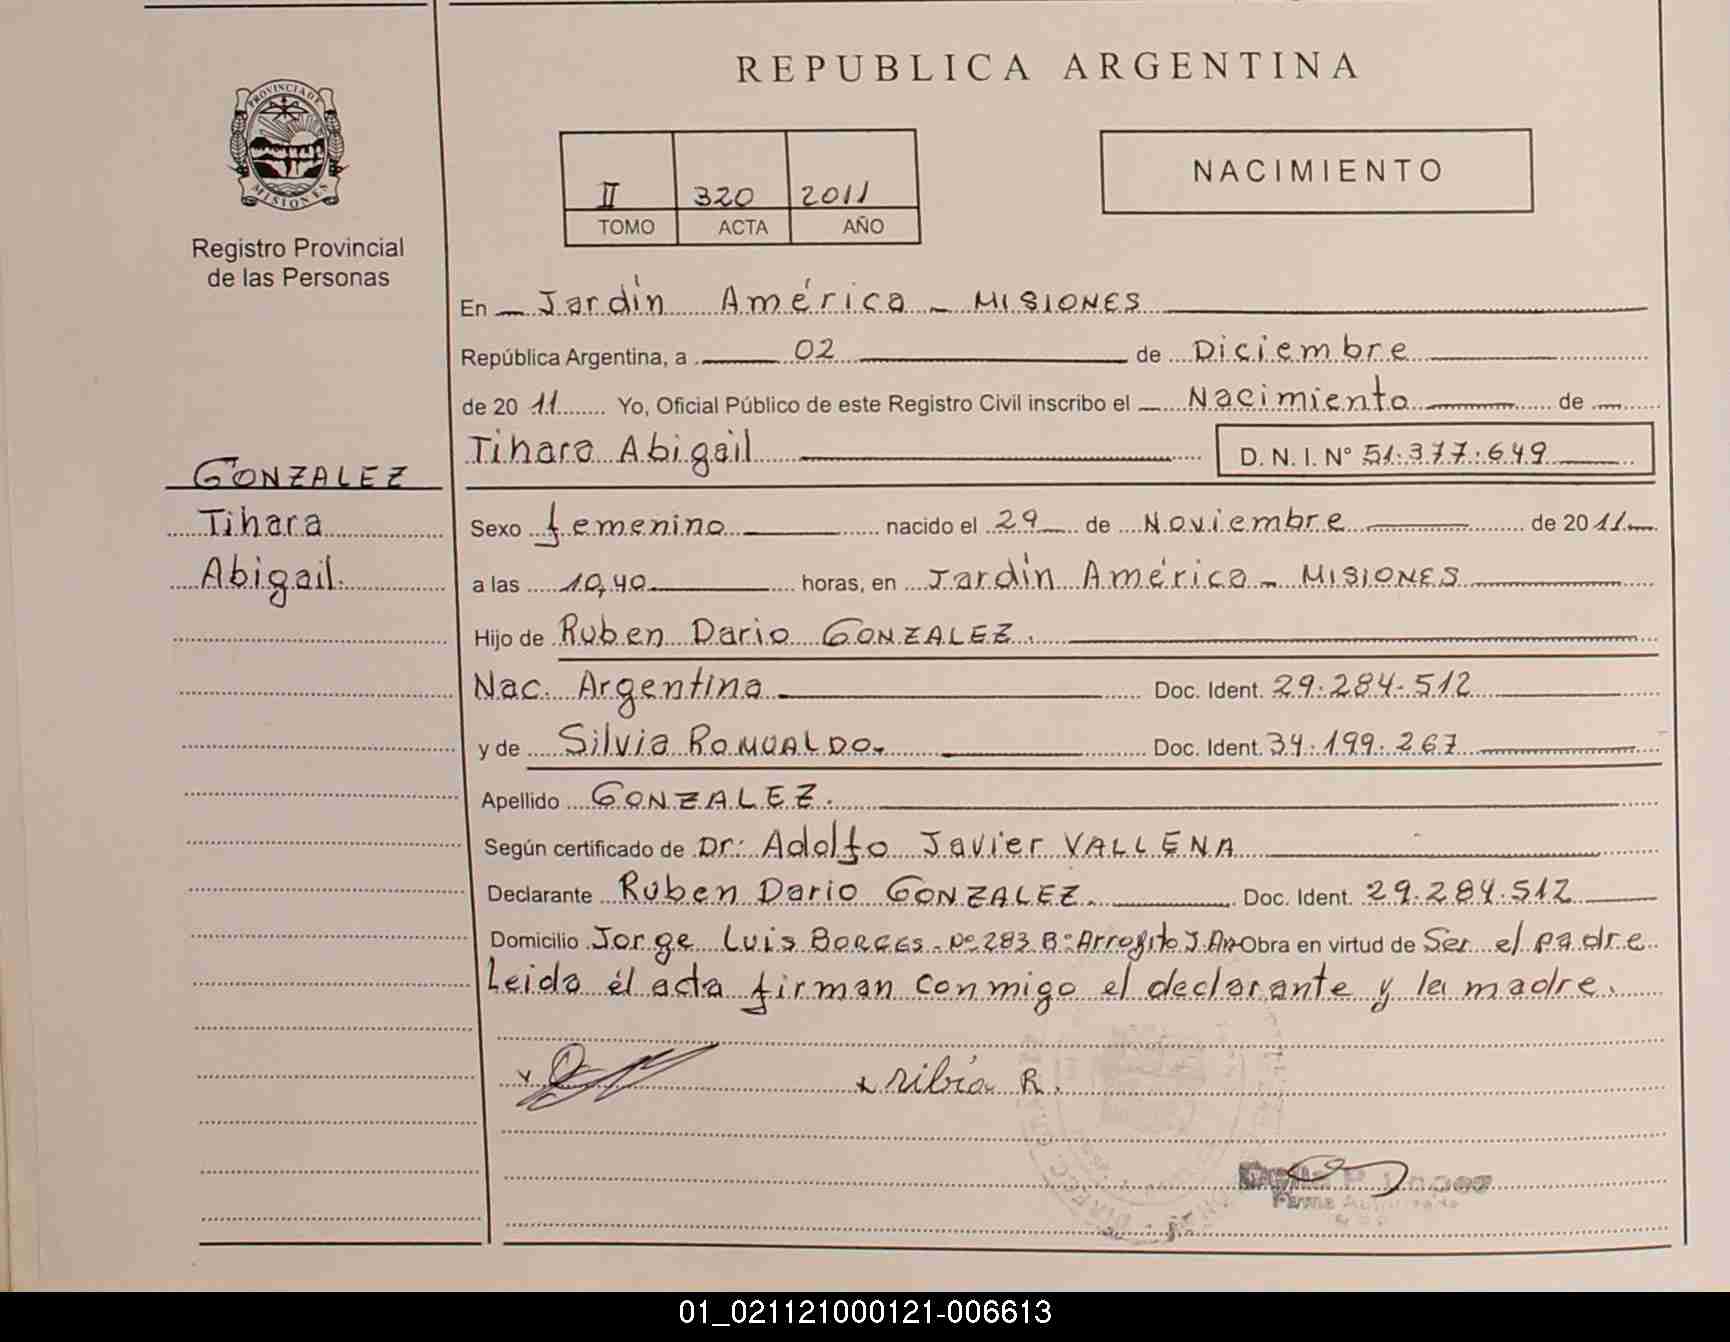 REPUBLICA ARGENTINA
PROVINCIA DE
MISIONES
Registro Provincial
de las Personas
II 320 2011
TOMO ACTA AÑO
NACIMIENTO
En Jardín América - MISIONES
República Argentina, a 02 de Diciembre
de 20 11 Yo, Oficial Público de este Registro Civil inscribo el Nacimiento de
Tihara Abigail D. N. I. N° 51.377.649
GONZALEZ
Tihara
Abigail.
Sexo femenino nacido el 29 de Noviembre de 2011
a las 10,40 horas, en Jardín América - MISIONES
Hijo de Ruben Dario GONZALEZ.
Nac. Argentina Doc. Ident. 29.284.512
y de Silvia ROMUALDO. Doc. Ident. 34.199.267
Apellido GONZALEZ.
Según certificado de Dr: Adolfo Javier VALLENA
Declarante Ruben Dario GONZALEZ. Doc. Ident. 29.284.512
Domicilio Jorge Luis BORGES - N° 283 B° Arroyito J. Am Obra en virtud de Ser el padre
Leida él acta firman conmigo el declarante y la madre.
x
x silbia R.
01_021121000121-006613